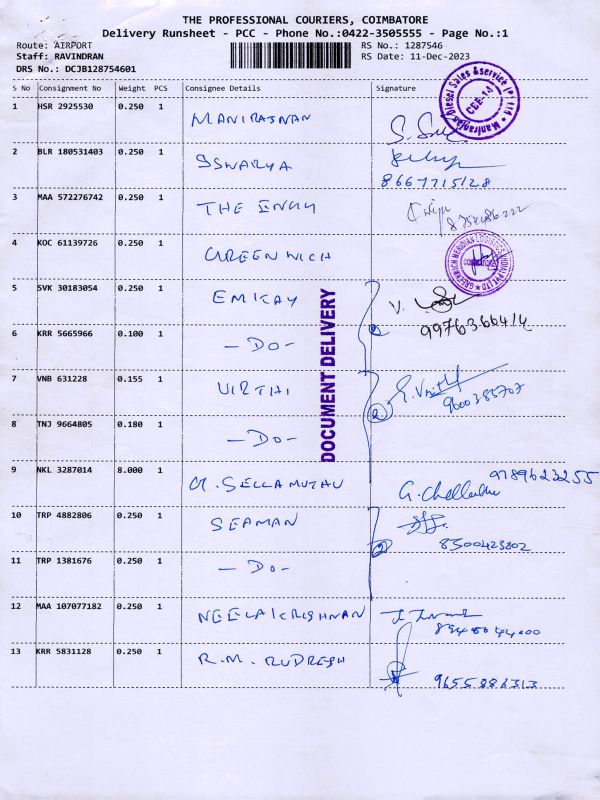 THE PROFESSIONAL COURIERS, COIMBATORE
Delivery Runsheet - PCC - Phone No.:0422-3505555 - Page No.:1
Route: AIRPORT RS No.: 1287546
Staff: RAVINDRAN RS Date: 11-Dec-2023
DRS No.: DCJB128754601
S No Consignment No Weight PCS Consignee Details Signature
Manirajnan Diesel Sales & Service (P) Ltd
CBE-14
1 HSR 2925530 0.250 1 MANIRAJNAN
2 BLR 180531403 0.250 1 ISWARYA
8667715128
3 MAA 572276742 0.250 1 THE
4 KOC 61139726 0.250 1 GREENWICH
GREENWICH MERIDIAN LOGISTICS (INDIA) PVT LTD
5 SVK 30183054 0.250 1 EMKAY
9976366414
6 KRR 5665966 0.100 1 -DO-
DOCUMENT DELIVERY
7 VNB 631228 0.155 1 VIRTHI
9600383707
8 TNJ 9664805 0.180 1 -DO- 2
9 NKL 3287014 8.000 1 G. SELLAMUTHU 9789623255
G. Chellamuthu
10 TRP 4882806 0.250 1 SEAMAN
8300423802
11 TRP 1381676 0.250 1 -DO- 2
12 MAA 107077182 0.250 1 NEELAKRISHNAN
13 KRR 5831128 0.250 1 R.M. RUDRESH
9655886313